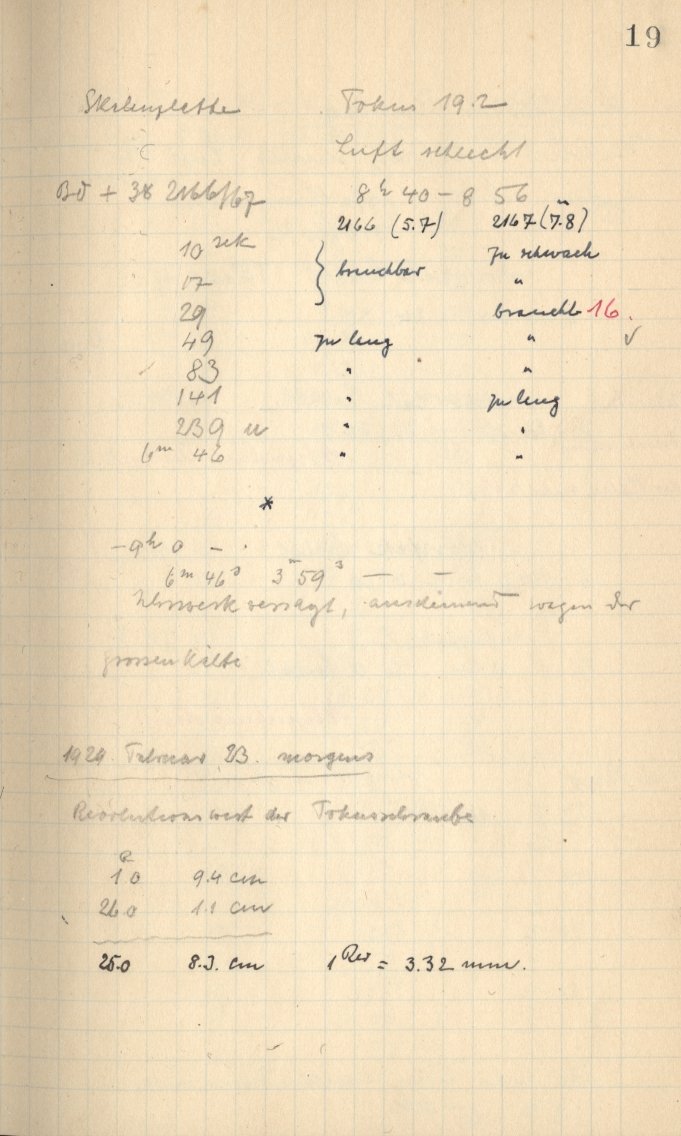 19
Skalenplatte Fokus 19.2
Luft schlecht
BD + 38 2166/67 8h 40 - 8 56m
2166 (5.7) 2167 (7.8)
10 sek } brauchbar zu schwach
17 "
29 brauchb 16.
49 zu lang " ✓
83 " "
141 " zu lang
239 " "
6m 46 " "
*
- 9h 0 - .
6m 46s 3m 59s — —
Uhrwerk versagt, anscheinend wegen der
grossen Kälte
1929 Februar 23. morgens
Revolutionswert der Fokusschraube
R
1.0 9.4 cm
26.0 1.1 cm
25.0 8.3. cm 1 Rev = 3.32 mm.